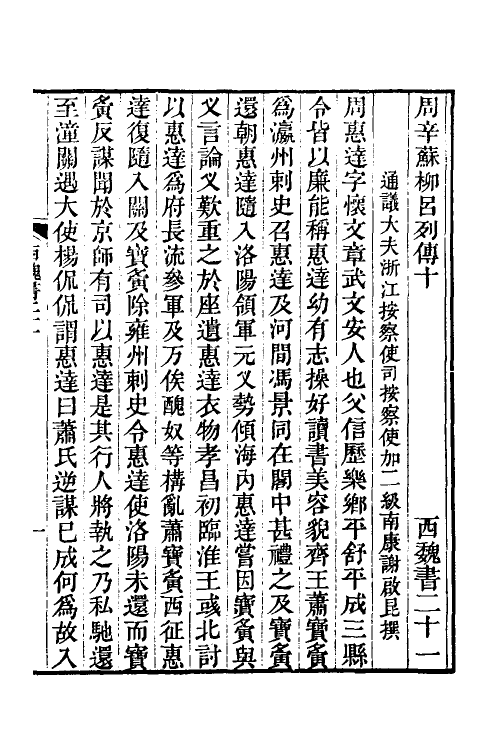 周辛蘇柳呂列傳十　西魏書二十一
通議大夫浙江按察使司按察使加二級南康謝啟昆撰
周惠達字懷文章武文安人也父信歷樂鄉平舒平成三縣
令皆以廉能稱惠達幼有志操好讀書美容貌齊王蕭寶夤
爲瀛州刺史召惠達及河間馮景同在閣中甚禮之及寶夤
還朝惠達隨入洛陽領軍元义勢傾海內惠達嘗因寶夤與
义言論义歎重之於座遺惠達衣物孝昌初臨淮王彧北討
以惠達爲府長流參軍及万俟醜奴等構亂蕭寶夤西征惠
達復隨入關及寶夤除雍州刺史令惠達使洛陽未還而寶
夤反謀聞於京師有司以惠達是其行人將執之乃私馳還
至潼關遇大使楊侃侃謂惠達曰蕭氏逆謀已成何爲故入
西魏書二十一
一